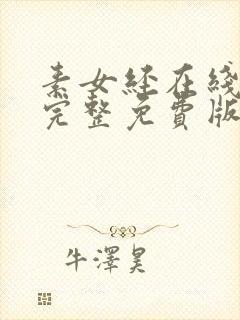 素女经在线
完整免費版
牛澤昊